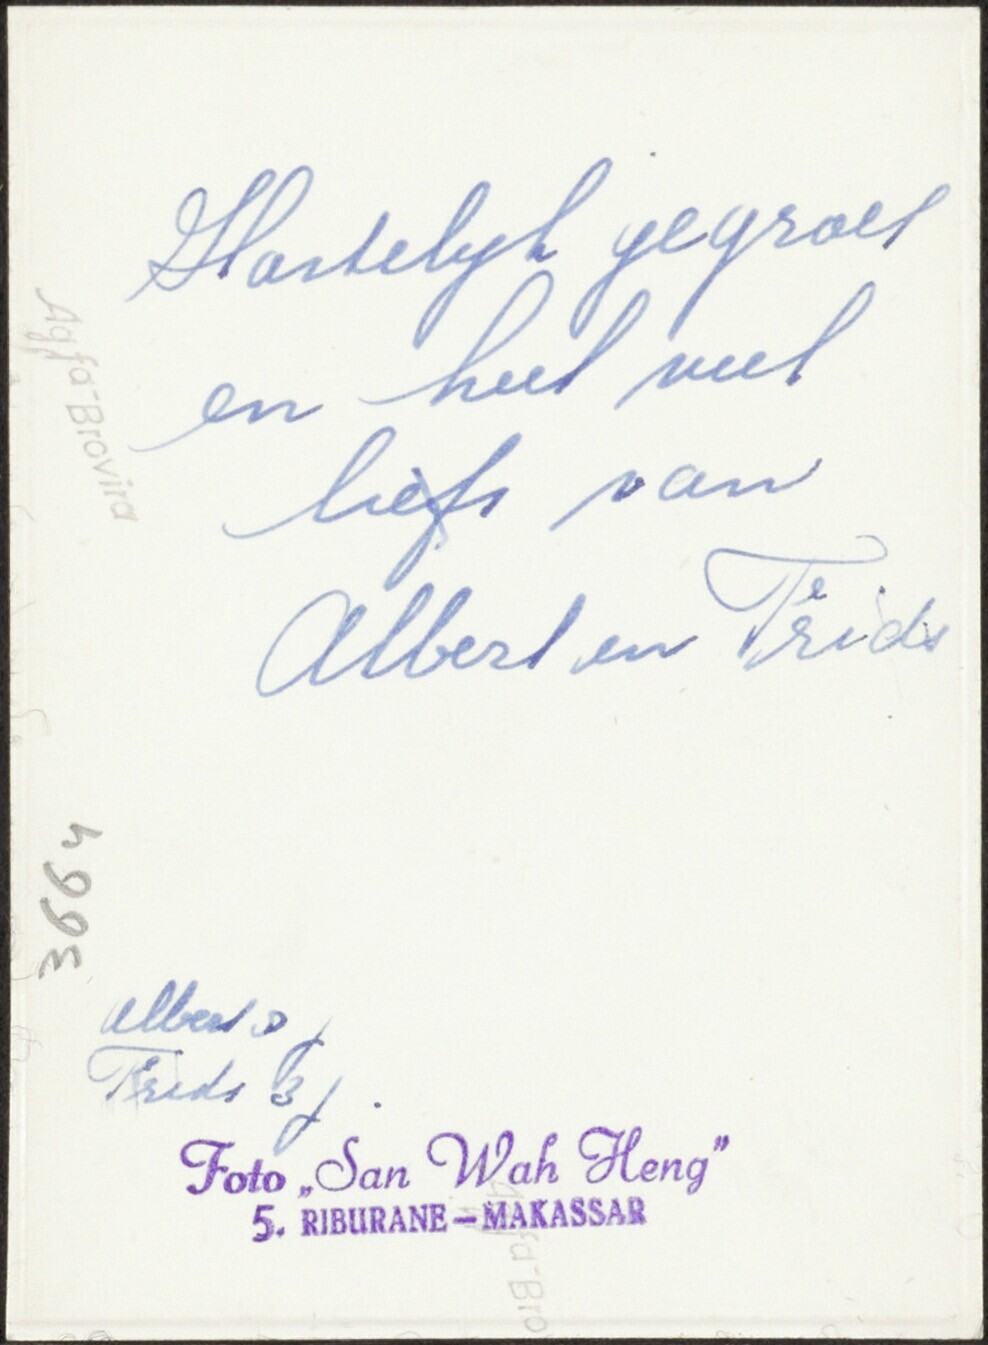 Hartelyk gegroet
en heel veel
liefs van
Albert en Frids
Agfa-Brovira
3664
Albert j
Frids 3 j.
Foto „San Wah Heng"
5. RIBURANE - MAKASSAR
Agfa-Bro